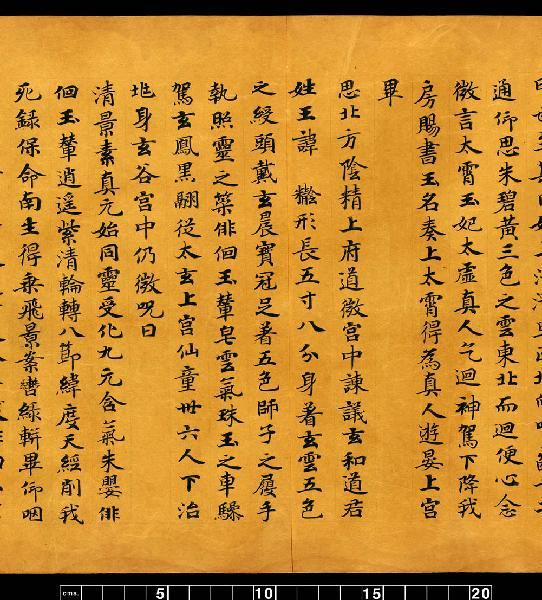 通仰思朱碧黃三色之雲東北而迴便心念
微言太霄玉妃太虛真人乞迴神駕下降我
房賜書玉名奏上太霄得為真人遊晏上宮
畢
思北方陰精上府道微宮中諫議玄和道君
姓王諱 形長五寸八分身著玄雲五色
之綬頭戴玄晨寶冠足著五色師子之履手
執照靈之策俳佪玉輦皂雲氣珠玉之車驂
駕玄鳳黑翮從太玄上宮仙童卅六人下治
兆身玄谷宮中仍微呪曰
清景素真元始同靈受化九元含氣朱嬰俳
佪玉輦逍遥紫清輪轉八節緯度天經削我
死録保命南生得乘飛景案轡緑軿畢仰咽